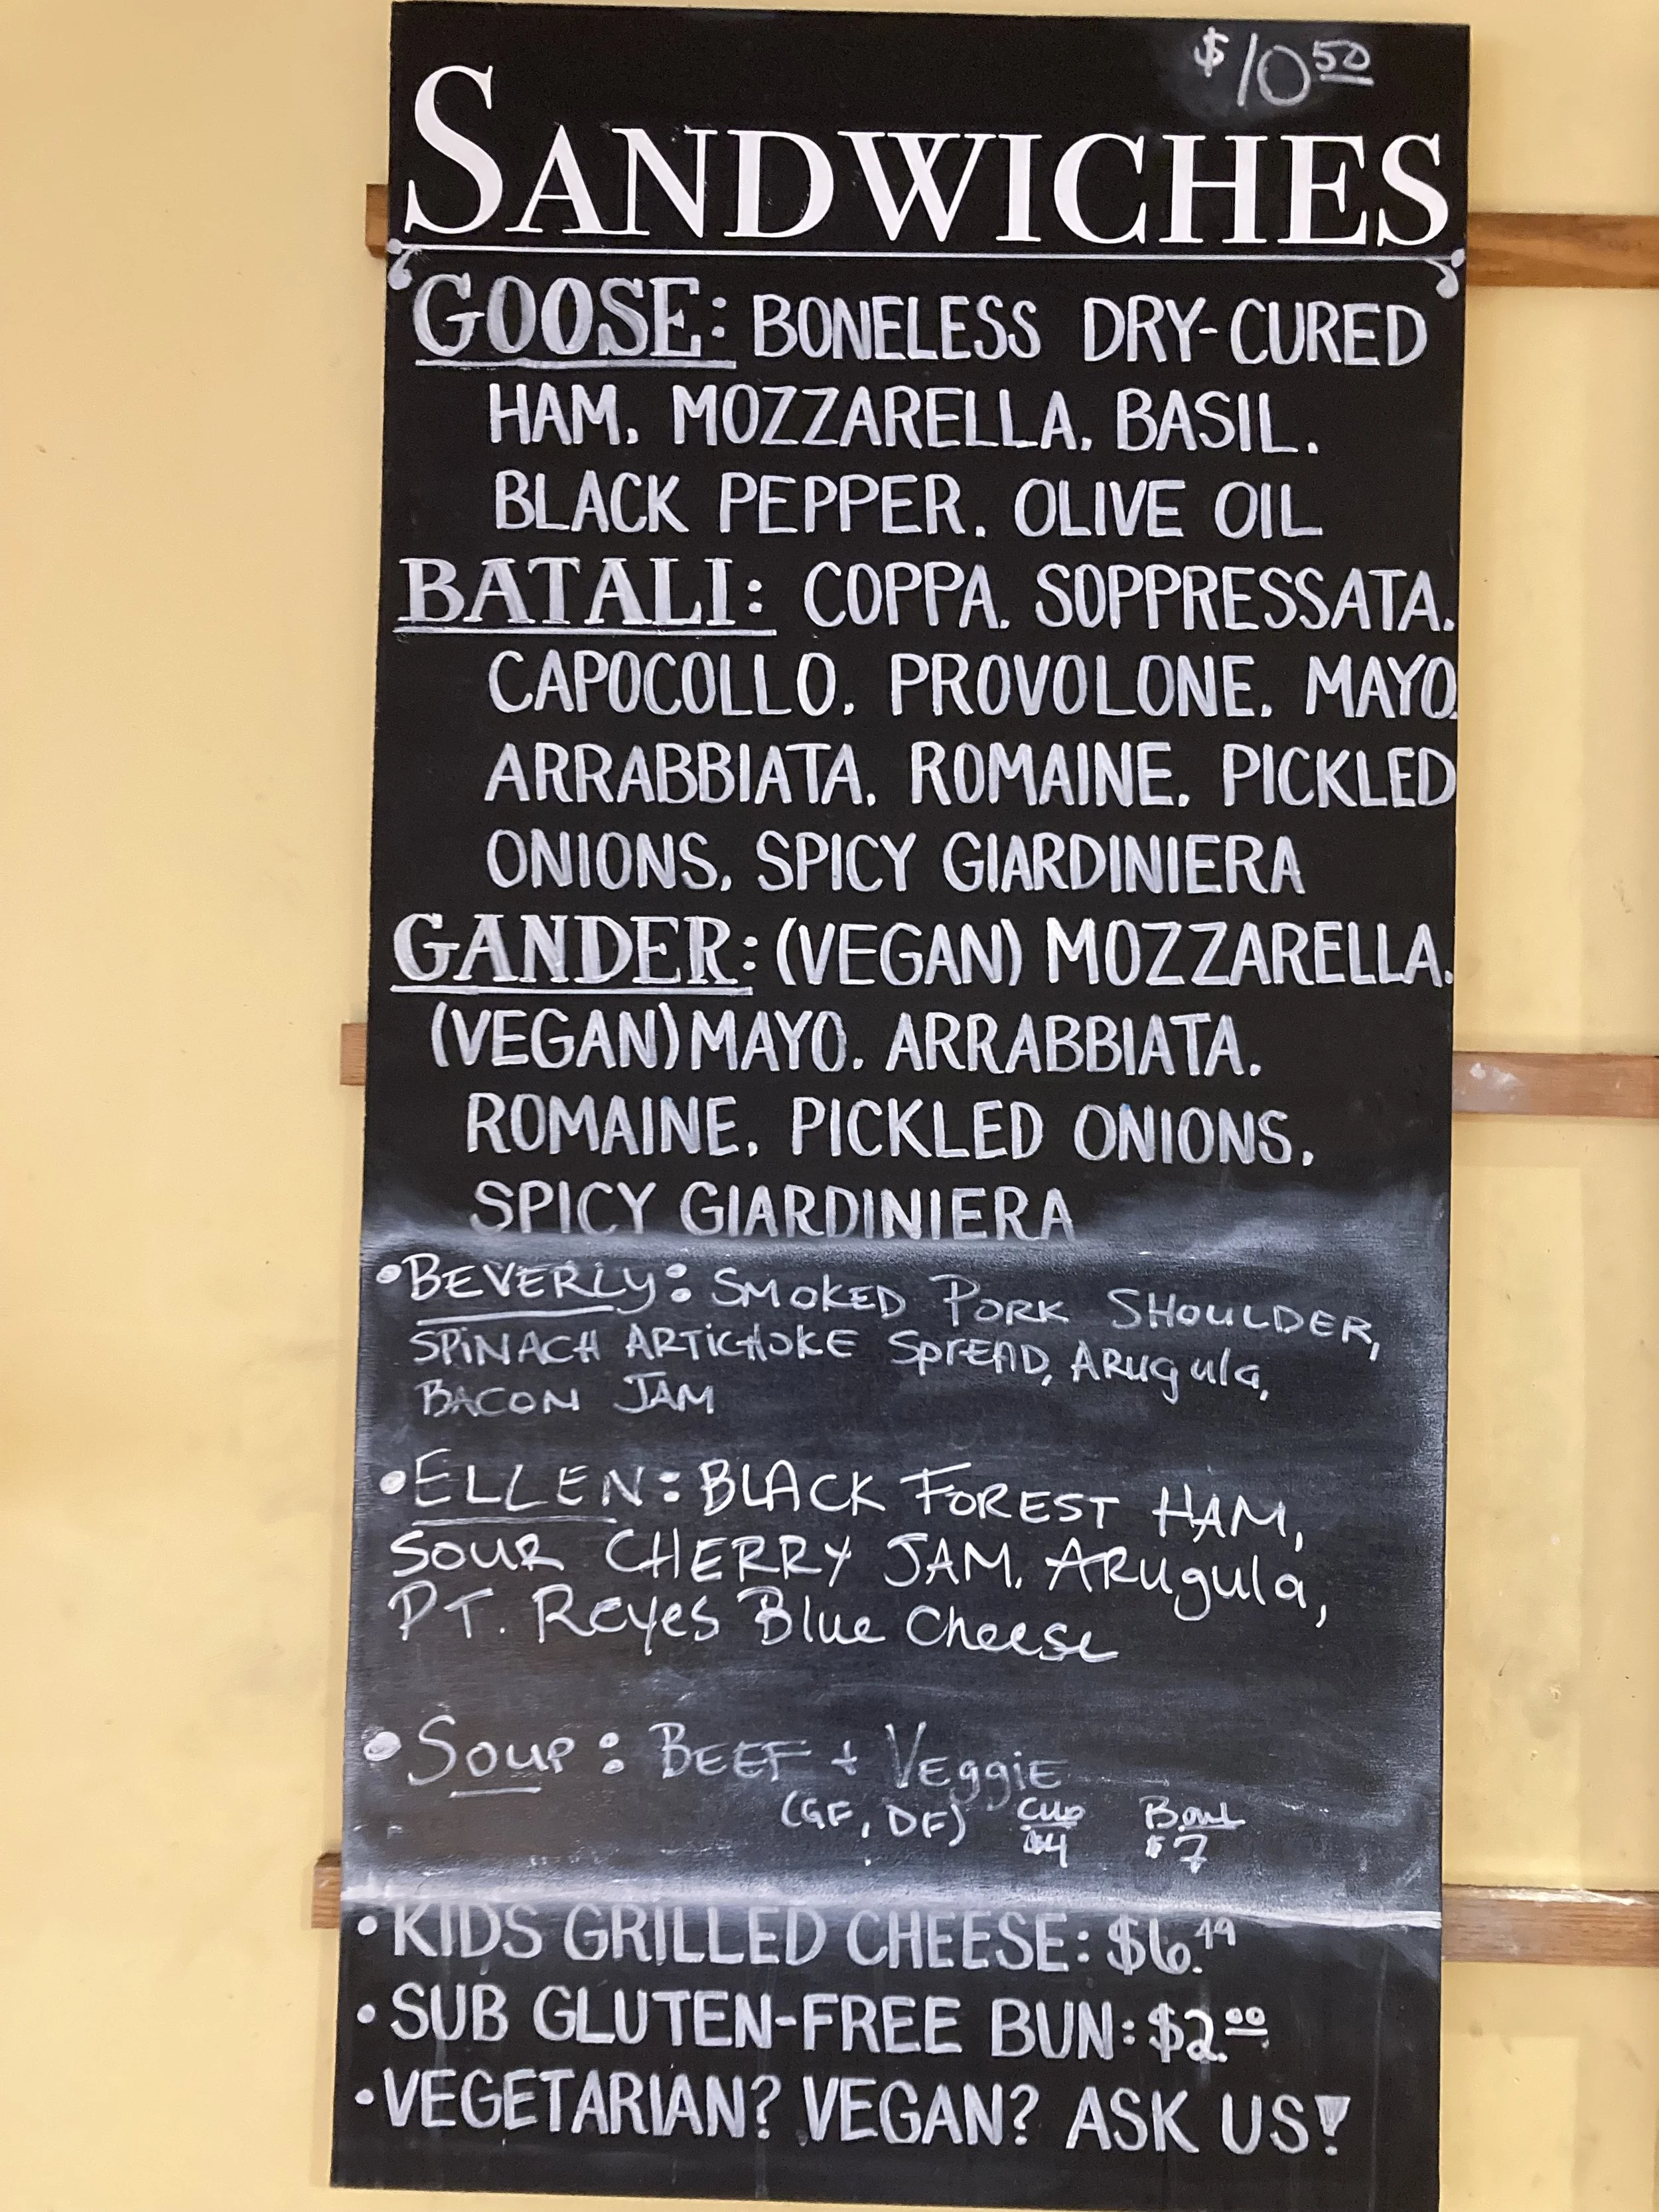 $10 50
SANDWICHES
GOOSE: BONELESS DRY-CURED
HAM, MOZZARELLA, BASIL,
BLACK PEPPER, OLIVE OIL
BATALI: COPPA, SOPPRESSATA,
CAPOCOLLO, PROVOLONE, MAYO,
ARRABBIATA, ROMAINE, PICKLED
ONIONS, SPICY GIARDINIERA
GANDER: (VEGAN) MOZZARELLA,
(VEGAN) MAYO, ARRABBIATA,
ROMAINE, PICKLED ONIONS,
SPICY GIARDINIERA
•BEVERLY: SMOKED PORK SHOULDER,
SPINACH ARTICHOKE SPREAD, ARugula,
BACON JAM
•ELLEN: BLACK FOREST HAM,
SOUR CHERRY JAM, ARugula,
PT. Reyes Blue Cheese
•Soup: BEEF + VeggiE
(GF, DF) Cup Bowl
$4 $7
•KIDS GRILLED CHEESE: $6.49
•SUB GLUTEN-FREE BUN: $2.00
•VEGETARIAN? VEGAN? ASK US!